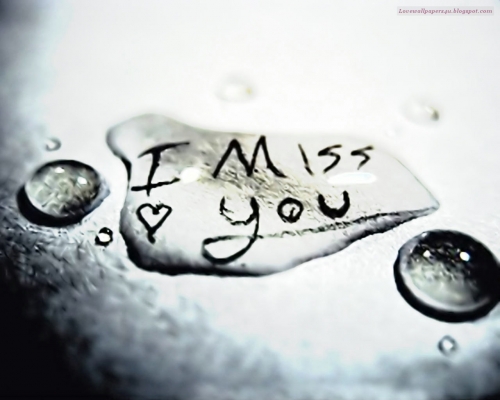 Lovewallpapers4u.blogspot.com
I Miss
you